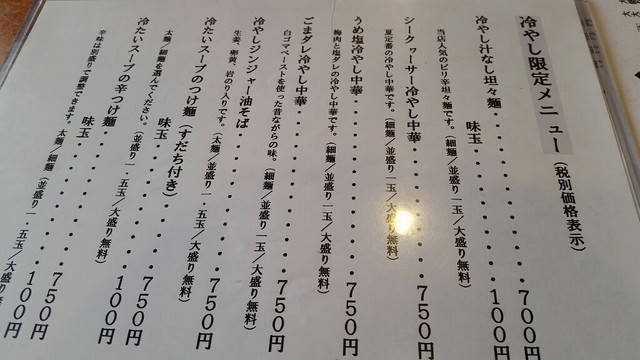 冷やし限定メニュー（税別価格表示）
冷やし汁なし坦々麺・・・・・・・・・・700円
味玉・・・・・・・・100円
当店人気のピリ辛坦々麺です。（細麺／並盛り一玉／大盛り無料）
シークヮーサー冷やし中華・・・・・・・・750円
夏定番の冷やし中華です。（細麺／並盛り一玉／大盛り無料）
うめ塩冷やし中華・・・・・・・・・・750円
梅肉と塩ダレの冷やし中華です。（細麺／並盛り一玉／大盛り無料）
ごまダレ冷やし中華・・・・・・・・・750円
白ゴマペーストを使った昔ながらの味。（細麺／並盛り一玉／大盛り無料）
冷やしジンジャー油そば・・・・・・・・750円
生姜、卵黄、岩のり入りです。（太麺／並盛り一．五玉／大盛り無料）
冷たいスープのつけ麺（すだち付き）・・・・750円
味玉・・・・・・・・100円
太麺／細麺を選んでください。（並盛り一．五玉／大盛り無料）
冷たいスープの辛つけ麺・・・・・・・・750円
味玉・・・・・・・・100円
辛味は別盛りで調整できます。太麺／細麺（並盛り一．五玉／大盛り無料